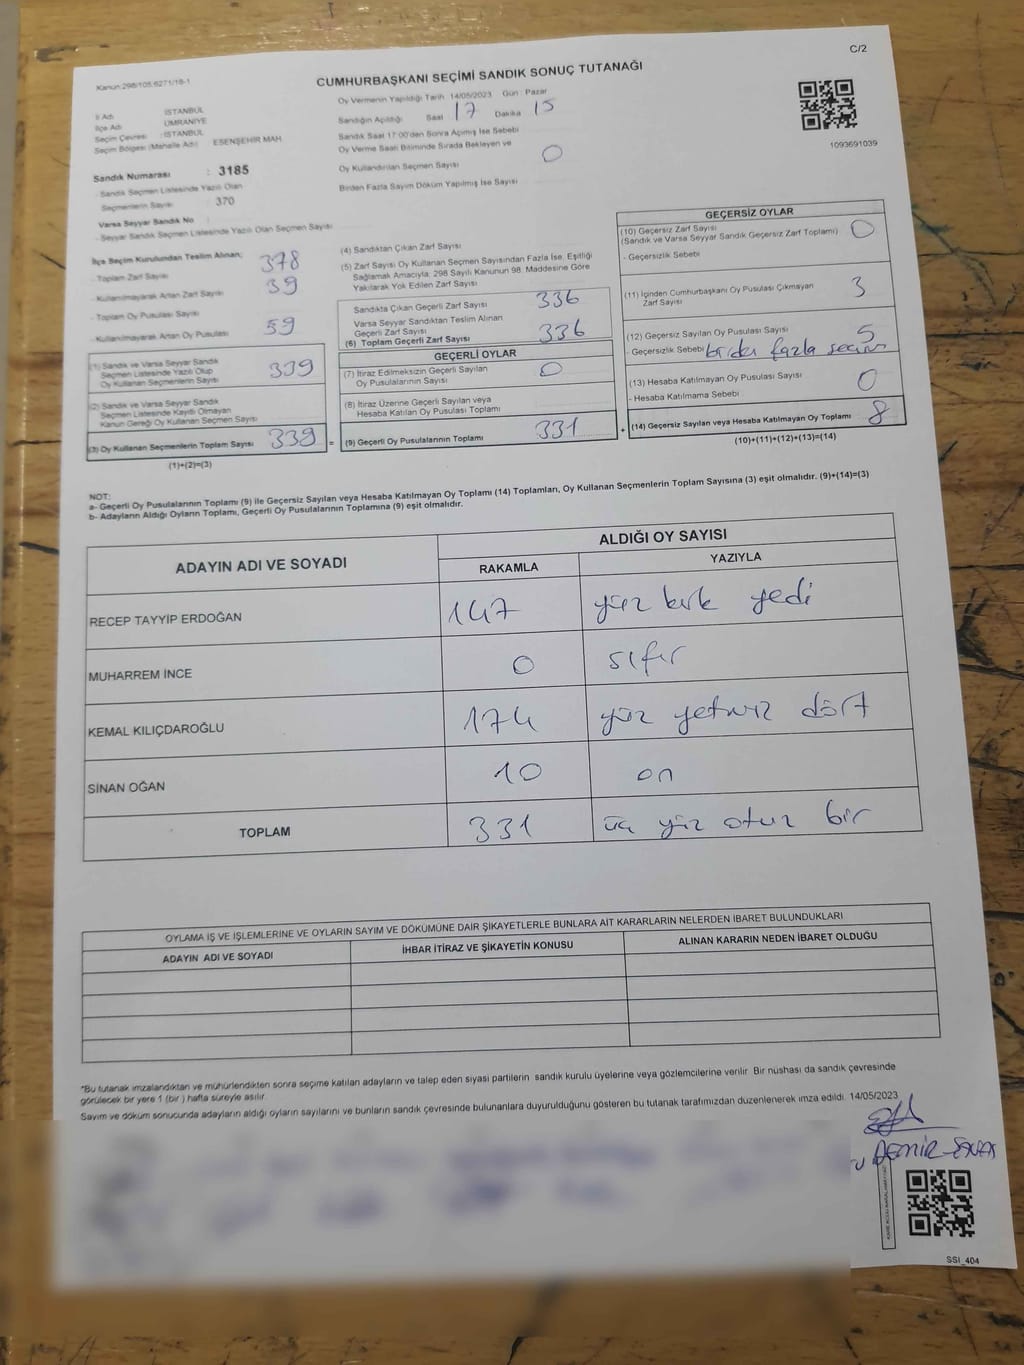 C/2
Kanun:298/105;6271/18-1
CUMHURBAŞKANI SEÇİMİ SANDIK SONUÇ TUTANAĞI
İl Adı İSTANBUL
İlçe Adı ÜMRANİYE
Seçim Çevresi : İSTANBUL
Seçim Bölgesi (Mahalle Adı) ESENŞEHİR MAH.
Oy Vermenin Yapıldığı Tarih 14/05/2023 Gün : Pazar
Sandığın Açıldığı Saat 17 Dakika 15
Sandık Saat 17:00'den Sonra Açılmış İse Sebebi
Oy Verme Saati Bitiminde Sırada Bekleyen ve
Oy Kullandırılan Seçmen Sayısı 0
Birden Fazla Sayım Döküm Yapılmış İse Sayısı
1093691039
Sandık Numarası : 3185
- Sandık Seçmen Listesinde Yazılı Olan
Seçmenlerin Sayısı 370
Varsa Seyyar Sandık No
- Seyyar Sandık Seçmen Listesinde Yazılı Olan Seçmen Sayısı
İlçe Seçim Kurulundan Teslim Alınan;
- Toplam Zarf Sayısı 378
- Kullanılmayarak Artan Zarf Sayısı 39
- Toplam Oy Pusulası Sayısı
- Kullanılmayarak Artan Oy Pusulası 59
(1) Sandık ve Varsa Seyyar Sandık
Seçmen Listesinde Yazılı Olup
Oy Kullanan Seçmenlerin Sayısı 339
(2) Sandık ve Varsa Seyyar Sandık
Seçmen Listesinde Kayıtlı Olmayan
Kanun Gereği Oy Kullanan Seçmen Sayısı
(3) Oy Kullanan Seçmenlerin Toplam Sayısı 339 =
(1)+(2)=(3)
(4) Sandıktan Çıkan Zarf Sayısı
(5) Zarf Sayısı Oy Kullanan Seçmen Sayısından Fazla İse, Eşitliği
Sağlamak Amacıyla; 298 Sayılı Kanunun 98. Maddesine Göre
Yakılarak Yok Edilen Zarf Sayısı
Sandıkta Çıkan Geçerli Zarf Sayısı 336
Varsa Seyyar Sandıktan Teslim Alınan
Geçerli Zarf Sayısı
(6) Toplam Geçerli Zarf Sayısı 336
GEÇERLİ OYLAR
(7) İtiraz Edilmeksizin Geçerli Sayılan
Oy Pusulalarının Sayısı 0
(8) İtiraz Üzerine Geçerli Sayılan veya
Hesaba Katılan Oy Pusulası Toplamı
(9) Geçerli Oy Pusulalarının Toplamı 331 +
GEÇERSİZ OYLAR
(10) Geçersiz Zarf Sayısı
(Sandık ve Varsa Seyyar Sandık Geçersiz Zarf Toplamı) 0
- Geçersizlik Sebebi
(11) İçinden Cumhurbaşkanı Oy Pusulası Çıkmayan
Zarf Sayısı 3
(12) Geçersiz Sayılan Oy Pusulası Sayısı 5
- Geçersizlik Sebebi birden fazla seçim
(13) Hesaba Katılmayan Oy Pusulası Sayısı 0
- Hesaba Katılmama Sebebi
(14) Geçersiz Sayılan veya Hesaba Katılmayan Oy Toplamı 8
(10)+(11)+(12)+(13)=(14)
NOT:
a- Geçerli Oy Pusulalarının Toplamı (9) ile Geçersiz Sayılan veya Hesaba Katılmayan Oy Toplamı (14) Toplamları, Oy Kullanan Seçmenlerin Toplam Sayısına (3) eşit olmalıdır. (9)+(14)=(3)
b- Adayların Aldığı Oyların Toplamı, Geçerli Oy Pusulalarının Toplamına (9) eşit olmalıdır.
ADAYIN ADI VE SOYADI
ALDIĞI OY SAYISI
RAKAMLA YAZIYLA
RECEP TAYYİP ERDOĞAN 147 yüz kırk yedi
MUHARREM İNCE 0 sıfır
KEMAL KILIÇDAROĞLU 174 yüz yetmiz dört
SİNAN OĞAN 10 on
TOPLAM 331 üç yüz otuz bir
OYLAMA İŞ VE İŞLEMLERİNE VE OYLARIN SAYIM VE DÖKÜMÜNE DAİR ŞİKAYETLERLE BUNLARA AİT KARARLARIN NELERDEN İBARET BULUNDUKLARI
ADAYIN ADI VE SOYADI İHBAR İTİRAZ VE ŞİKAYETİN KONUSU ALINAN KARARIN NEDEN İBARET OLDUĞU
*Bu tutanak imzalandıktan ve mühürlendikten sonra seçime katılan adayların ve talep eden siyasi partilerin sandık kurulu üyelerine veya gözlemcilerine verilir. Bir nüshası da sandık çevresinde
görülecek bir yere 1 (bir) hafta süreyle asılır.
Sayım ve döküm sonucunda adayların aldığı oyların sayılarını ve bunların sandık çevresinde bulunanlara duyurulduğunu gösteren bu tutanak tarafımızdan düzenlenerek imza edildi. 14/05/2023
SSI_404